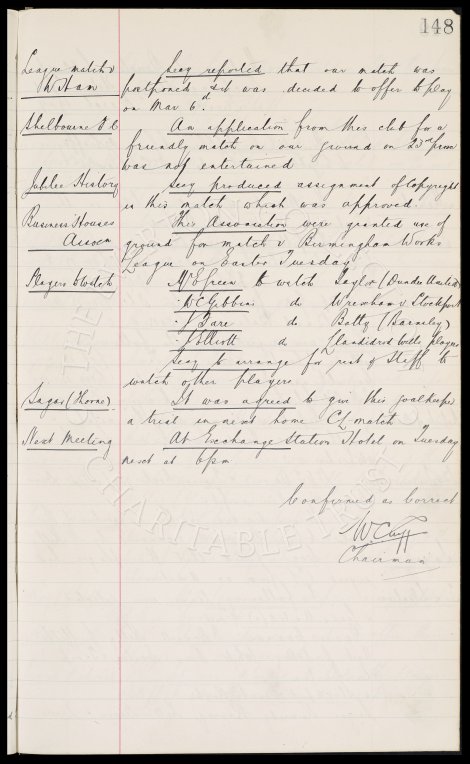 148
League match v
W Ham
Secy reported that our match was
postponed & it was decided to offer to play
on Mar 6.
Shelbourne F C
An application from this club for a
friendly match on our ground on 23rd prox
was not entertained
Jubilee History
Secy produced assignment of Copyright
in this match which was approved.
Business Houses
Assocn
This Association were granted use of
ground for match v Birmingham Works
League on Easter Tuesday
Players to Watch
Mr E Green to watch Taylor (Dundee United)
" W C Gibbins do Wrexham v Stockport
" J Sare do Batty (Barnsley)
" J Elliott do Llandidrod Wells players
Secy to arrange for rest of Staff to
watch other players
Sagar (Thorne).
It was agreed to give this goalkeeper
a trial in next home CL match
Next Meeting
At Exchange Station Hotel on Tuesday
next at 6pm
Confirmed as Correct
W C Cuff
Chairman
CHARITABLE TRUST